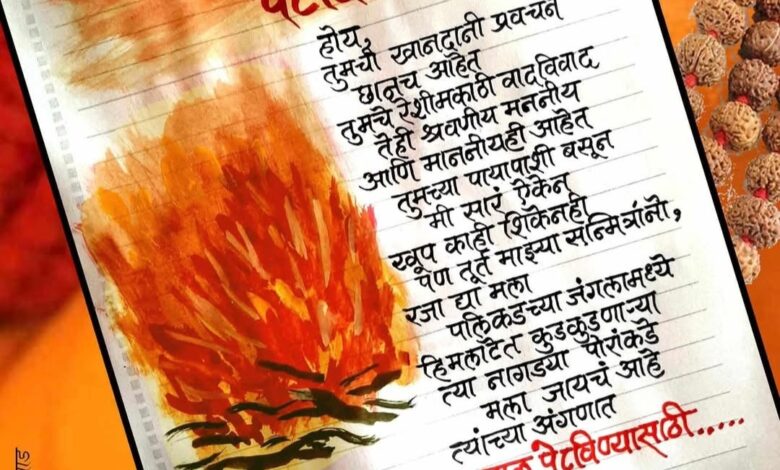 होय,
तुमची खानदानी प्रवचनं
छानच आहेत
तुमचे रेशीमकाठी वादविवाद
तेही श्रवणीय मननीय
आणि माननीयही आहेत
तुमच्या पायापाशी बसून
मी सारं ऐकेन
खूप काही शिकेनही
पण तूर्त माझ्या सन्मित्रांनो,
रजा द्या मला
पलिकडच्या जंगलामध्ये
हिमलाटेत कुडकुडणाऱ्या
त्या नागड्या पोरांकडे
मला जायचं आहे
त्यांच्या अंगणात
पेटविण्यासाठी.....